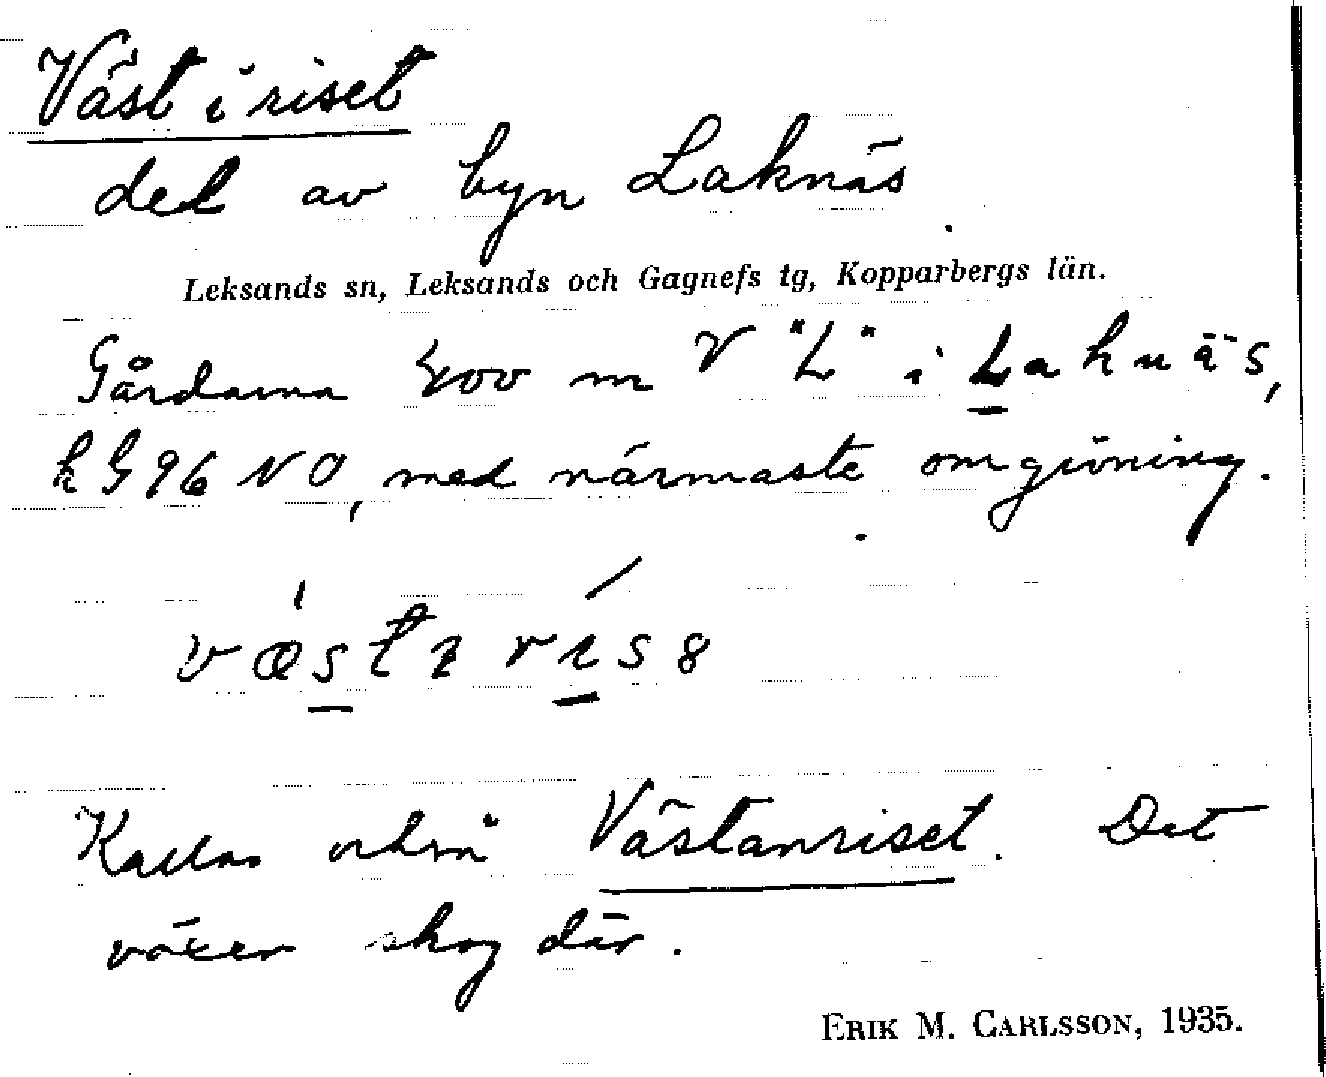 Väst i riset
del av byn Laknäs.
Leksands sn, Leksands och Gagnefs tg, Kopparbergs län.
Gårdarna 400 m V "L" i Laknäs,
k G 96 NO, med närmaste omgivning.
Kallas också Västanriset. Det
växer skog där.
ERIK M. CARLSSON, 1935.